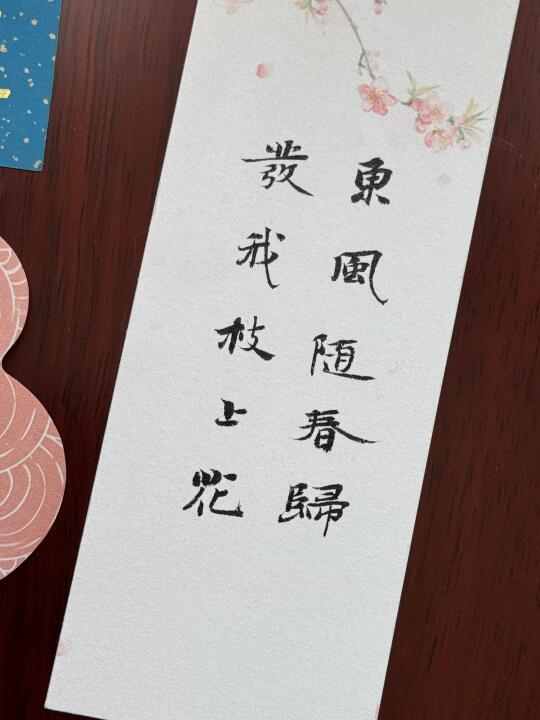 東風随春歸
發我枝上花